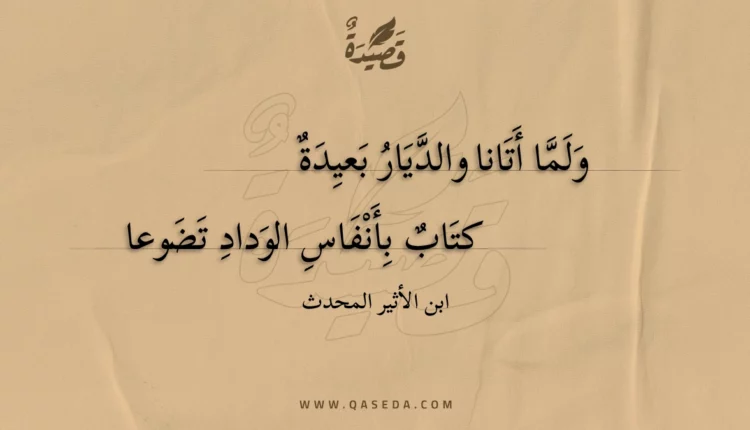 قَصِيْدَةٌ
وَلَمَّا أَتَانا والدَّيَارُ بَعيِدَةٌ
كتَابٌ بِأَنْفَاسِ الوَدادِ تَضَوعا
ابن الأثير المحدث
WWW.QASEDA.COM